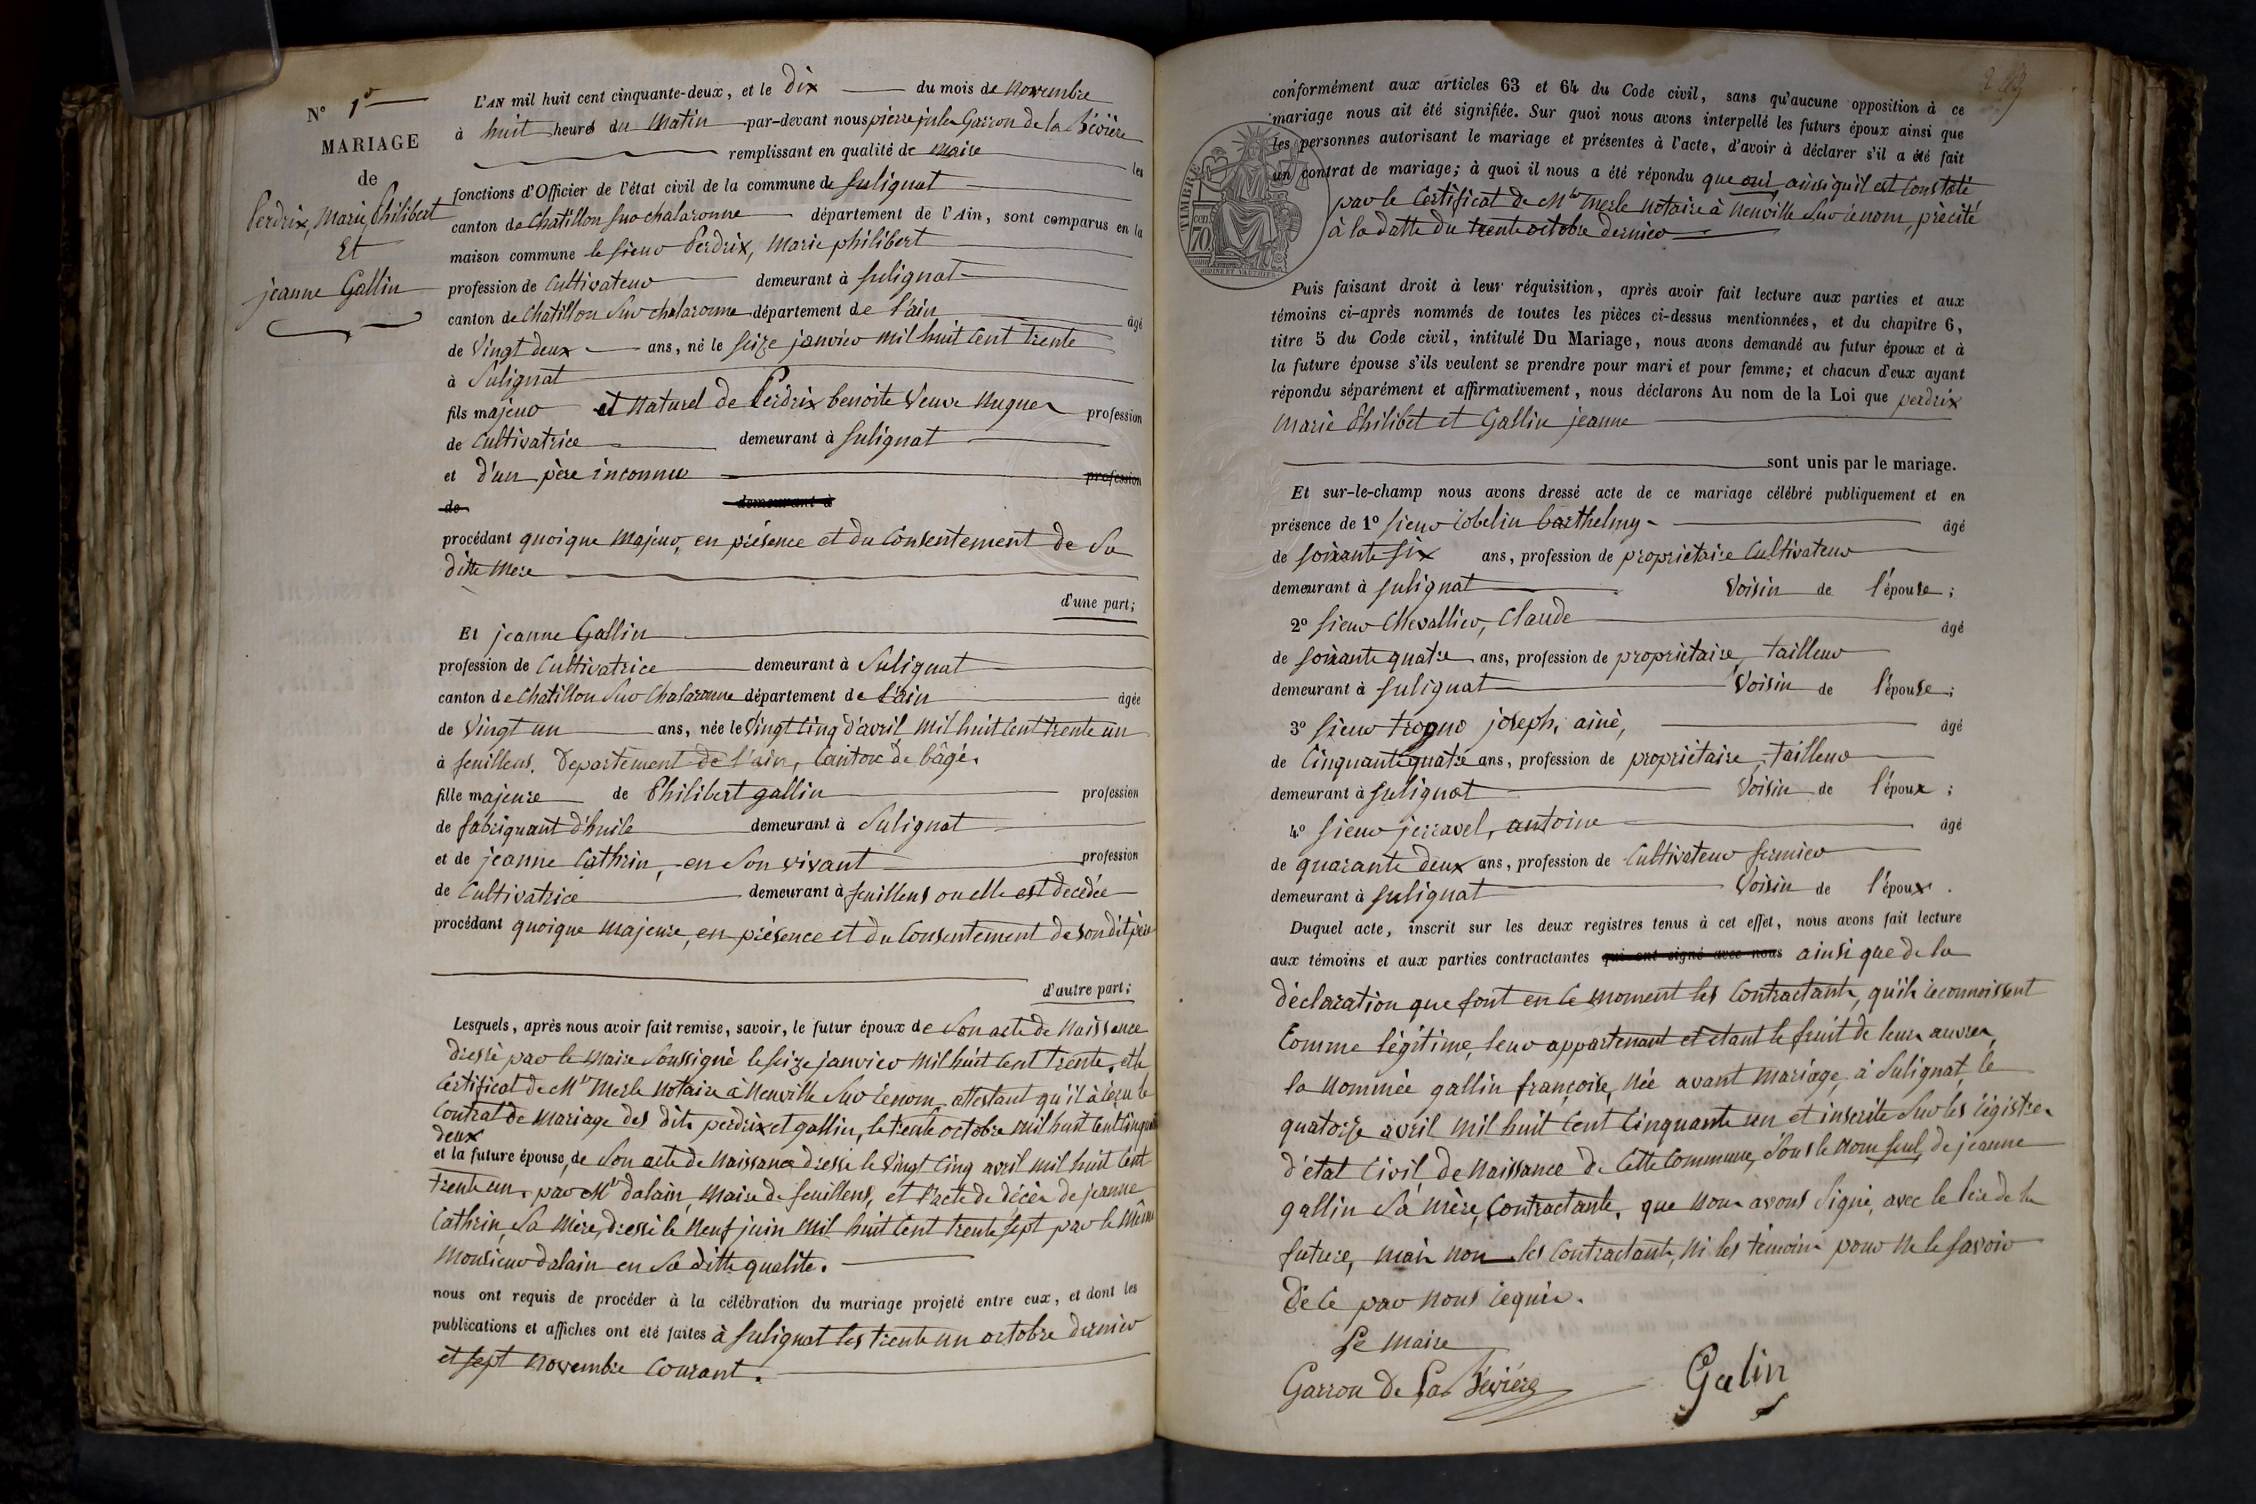 N° 1er
MARIAGE
de
Perdrix, Marie Philibert
Et
jeanne Gallin
L'AN mil huit cent cinquante-deux, et le dix du mois de Novembre
à huit heures du Matin par-devant nous pierre jules Garron de la Bévière
remplissant en qualité de Maire les
fonctions d'Officier de l'état civil de la commune de Sulignat
canton de Chatillon sur chalaronne département de l'Ain, sont comparus en la
maison commune le sieur Perdrix, Marie philibert
profession de Cultivateur demeurant à Sulignat
canton de Chatillon sur chalaronne département de l'ain âgé
de Vingt deux ans, né le seize janvier mil huit cent trente
à Sulignat
fils majeur et Naturel de Perdrix benoite Veuve Nugues profession
de Cultivatrice demeurant à Sulignat
et d'un père inconnu profession
de demeurant à
procédant quoique Majeur, en présence et du Consentement de Sa
ditte Mere
d'une part;
Et jeanne Gallin
profession de Cultivatrice demeurant à Sulignat
canton de Chatillon sur Chalaronne département de l'ain âgée
de Vingt un ans, née le Vingt Cinq d'avril Mil huit Cent trente un
à feuillens. Departement de l'ain, Canton de bâgé.
fille majeure de Philibert gallin profession
de fabriquant d'huile demeurant à Sulignat
et de jeanne Cathrin, en Son vivant profession
de Cultivatrice demeurant à feuillens ou elle est decédée
procédant quoique Majeure, en présence et du Consentement de son dit père
d'autre part;
Lesquels, après nous avoir fait remise, savoir, le futur époux de Son acte de Naissance
dressé par le Maire Soussigné le seize janvier mil huit Cent trente. et le
Certificat de Mtre Merle Notaire à Neuville Sur renom attestant qu'il à reçu le
Contrat de Mariage des dits perdrix et gallin, le trente octobre mil huit Cent Cinquante
deux
et la future épouse, de Son acte de Naissance dressé le Vingt Cinq avril mil huit Cent
trente un par Mr dalain, Maire de feuillens, et l'acte de décès de jeanne
Cathrin, Sa Mère, dressé le Neuf juin Mil huit Cent trente Sept par le Même
Monsieur dalain en Sa ditte qualité.
nous ont requis de procéder à la célébration du mariage projeté entre eux, et dont les
publications et affiches ont été faites à Sulignat les trente un octobre dernier
et Sept Novembre Courant.
conformément aux articles 63 et 64 du Code civil, sans qu'aucune opposition à ce
mariage nous ait été signifiée. Sur quoi nous avons interpellé les futurs époux ainsi que
les personnes autorisant le mariage et présentes à l'acte, d'avoir à déclarer s'il a été fait
un contrat de mariage; à quoi il nous a été répondu que oui, ainsi qu'il est Constaté
par le Certificat de Mtre Merle Notaire à Neuville Sur renom, précité
à la datte du trente octobre dernier
TIMBRE
70
Puis faisant droit à leur réquisition, après avoir fait lecture aux parties et aux
témoins ci-après nommés de toutes les pièces ci-dessus mentionnées, et du chapitre 6,
titre 5 du Code civil, intitulé Du Mariage, nous avons demandé au futur époux et à
la future épouse s'ils veulent se prendre pour mari et pour femme; et chacun d'eux ayant
répondu séparément et affirmativement, nous déclarons Au nom de la Loi que perdrix
Marie Philibet et Gallin jeanne
sont unis par le mariage.
Et sur-le-champ nous avons dressé acte de ce mariage célébré publiquement et en
présence de 1° Sieur Cobelin barthelmy âgé
de soixante Six ans, profession de propriétaire Cultivateur
demeurant à Sulignat Voisin de l'épouse;
2° Sieur Chevallier, Claude âgé
de soixante quatre ans, profession de propriétaire, tailleur
demeurant à Sulignat Voisin de l'épouse;
3° Sieur joseph, ainé, âgé
de Cinquante quatre ans, profession de propriétaire, tailleur
demeurant à Sulignat Voisin de l'époux;
4° Sieur jerravel, antoine âgé
de quarante deux ans, profession de Cultivateur fermier
demeurant à Sulignat Voisin de l'époux.
Duquel acte, inscrit sur les deux registres tenus à cet effet, nous avons fait lecture
aux témoins et aux parties contractantes qui ont signé avec nous ainsi que de la
déclaration que font en ce moment les Contractants, qu'ils reconnoissent
Comme légitime, leur appartenant et étant le fruit de leurs œuvres,
la Nommée gallin françoise, Née avant Mariage, à Sulignat, le
quatorze avril Mil huit Cent Cinquante un et inscrite Sur les régistres
d'état Civil de Naissance de Cette Commune, Sous le Nom Seul de jeanne
gallin Sa Mère, Contractante. que Nous avons Signé, avec le Père de la
future, mais non les Contractants, Ni les témoins pour Ne le Savoir
de Ce par Nous requis.
Le Maire
Garron De La Bévière
Galin